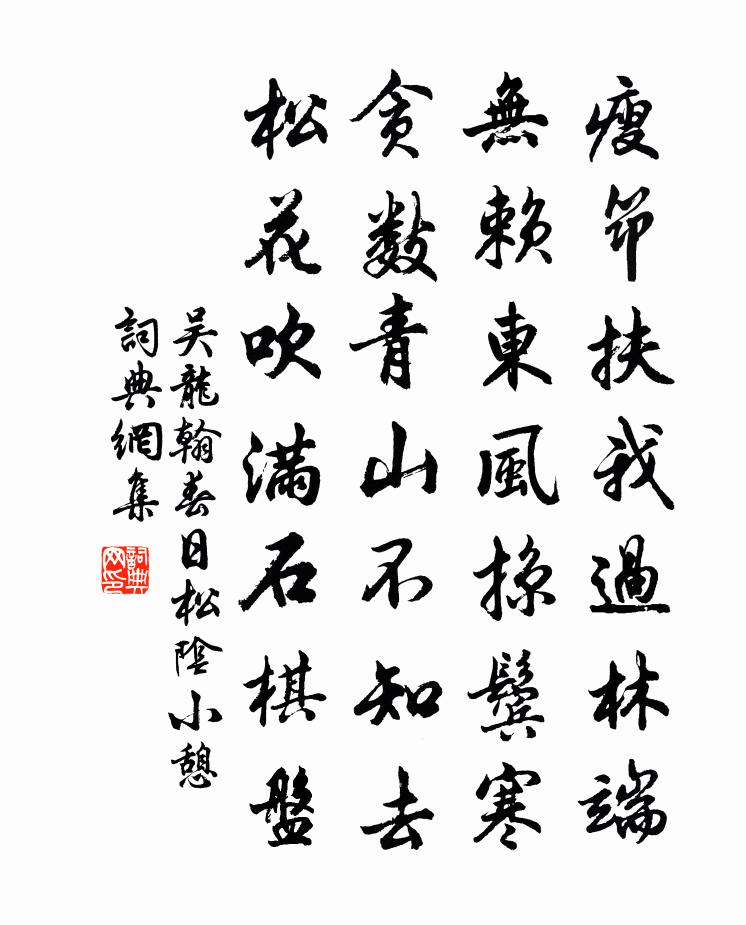 瘦筇扶我過林端
無賴東風掠鬢寒
貪數青山不知去
松花吹滿石棋盤
吳龍翰春日松陰小憩
詞典網集
詞典网印